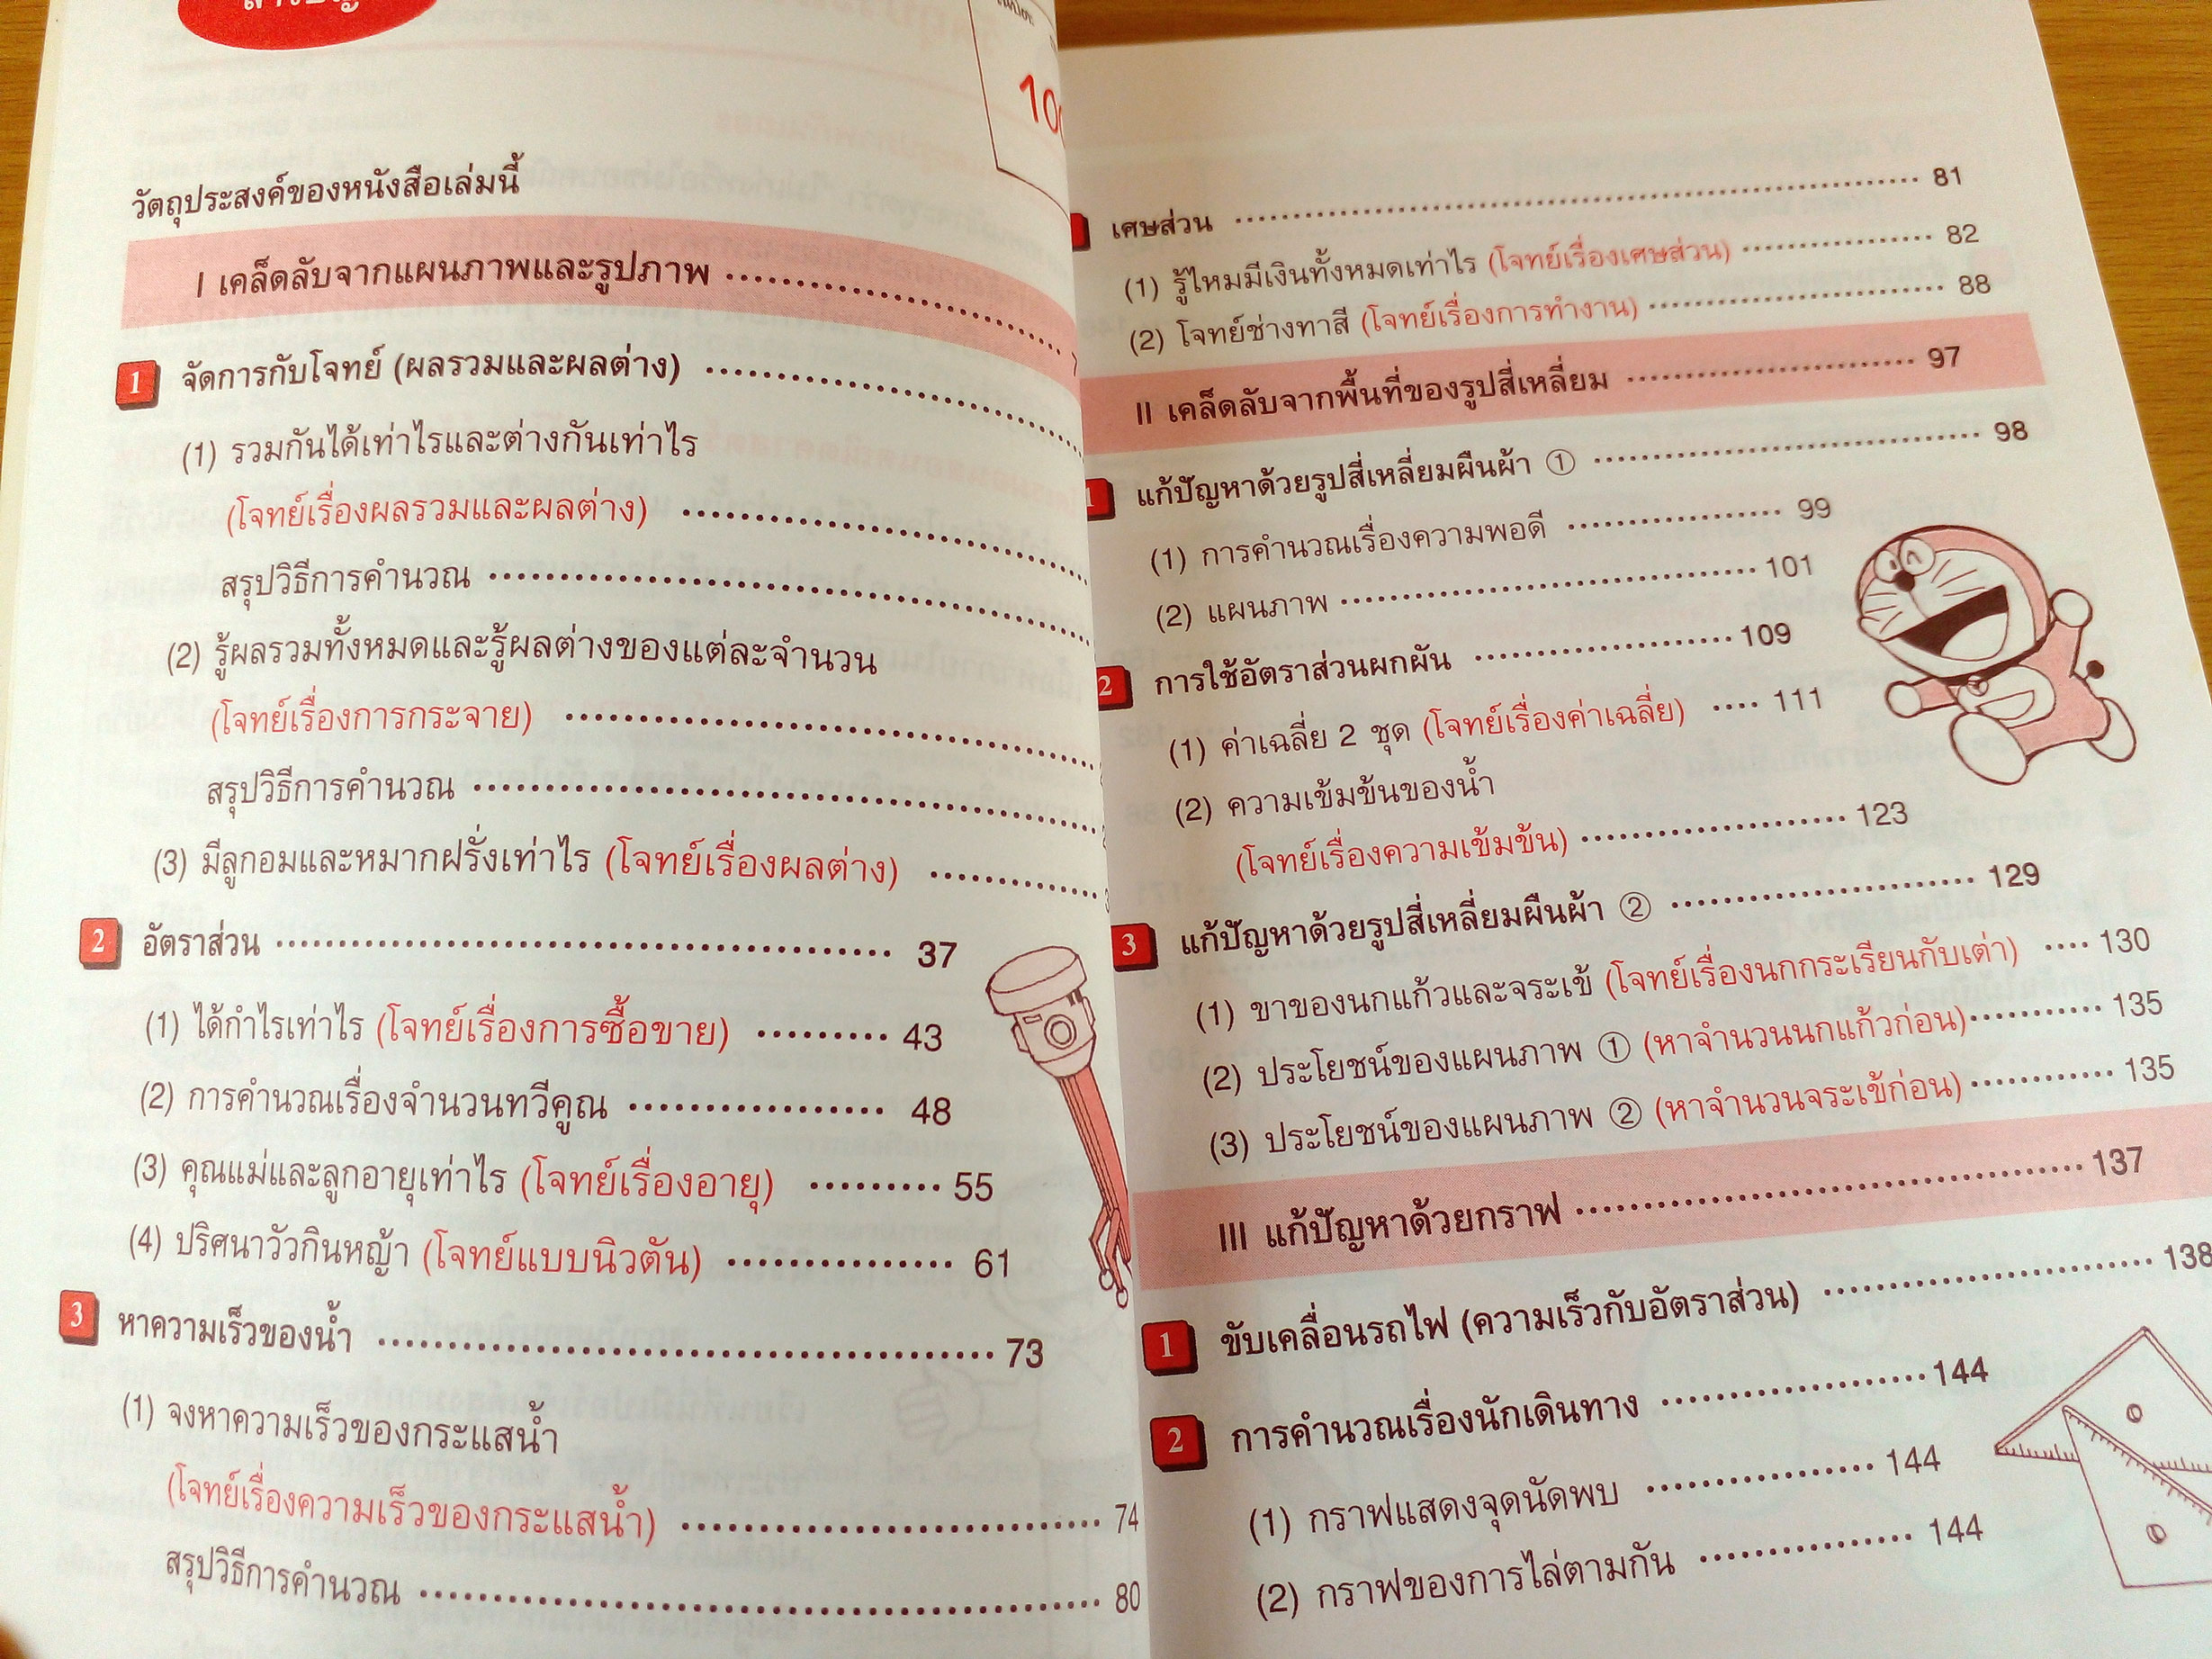 สารบัญ
100
วัตถุประสงค์ของหนังสือเล่มนี้
I เคล็ดลับจากแผนภาพและรูปภาพ ........................ 7
1 จัดการกับโจทย์ (ผลรวมและผลต่าง) ........................
(1) รวมกันได้เท่าไรและต่างกันเท่าไร
(โจทย์เรื่องผลรวมและผลต่าง) ........................
สรุปวิธีการคำนวณ ........................
(2) รู้ผลรวมทั้งหมดและรู้ผลต่างของแต่ละจำนวน
(โจทย์เรื่องการกระจาย) ........................
สรุปวิธีการคำนวณ ........................
(3) มีลูกอมและหมากฝรั่งเท่าไร (โจทย์เรื่องผลต่าง) ............
2 อัตราส่วน ........................ 37
(1) ได้กำไรเท่าไร (โจทย์เรื่องการซื้อขาย) ......... 43
(2) การคำนวณเรื่องจำนวนทวีคูณ ................. 48
(3) คุณแม่และลูกอายุเท่าไร (โจทย์เรื่องอายุ) ......... 55
(4) ปริศนาวัวกินหญ้า (โจทย์แบบนิวตัน) ............... 61
3 หาความเร็วของน้ำ ........................ 73
(1) จงหาความเร็วของกระแสน้ำ
(โจทย์เรื่องความเร็วของกระแสน้ำ) ........................ 74
สรุปวิธีการคำนวณ ........................ 80
เศษส่วน ........................ 81
(1) รู้ไหมมีเงินทั้งหมดเท่าไร (โจทย์เรื่องเศษส่วน) ................. 82
(2) โจทย์ช่างทาสี (โจทย์เรื่องการทำงาน) ........................ 88
II เคล็ดลับจากพื้นที่ของรูปสี่เหลี่ยม ........................ 97
1 แก้ปัญหาด้วยรูปสี่เหลี่ยมผืนผ้า ① ........................ 98
(1) การคำนวณเรื่องความพอดี .................. 99
(2) แผนภาพ ........................ 101
2 การใช้อัตราส่วนผกผัน ..................... 109
(1) ค่าเฉลี่ย 2 ชุด (โจทย์เรื่องค่าเฉลี่ย) .... 111
(2) ความเข้มข้นของน้ำ
(โจทย์เรื่องความเข้มข้น) ..................... 123
3 แก้ปัญหาด้วยรูปสี่เหลี่ยมผืนผ้า ② ........................ 129
(1) ขาของนกแก้วและจระเข้ (โจทย์เรื่องนกกระเรียนกับเต่า) .... 130
(2) ประโยชน์ของแผนภาพ ① (หาจำนวนนกแก้วก่อน)........... 135
(3) ประโยชน์ของแผนภาพ ② (หาจำนวนจระเข้ก่อน)............ 135
III แก้ปัญหาด้วยกราฟ ........................ 137
1 ขับเคลื่อนรถไฟ (ความเร็วกับอัตราส่วน) ........................ 138
2 การคำนวณเรื่องนักเดินทาง ..................... 144
(1) กราฟแสดงจุดนัดพบ ................. 144
(2) กราฟของการไล่ตามกัน ................ 144